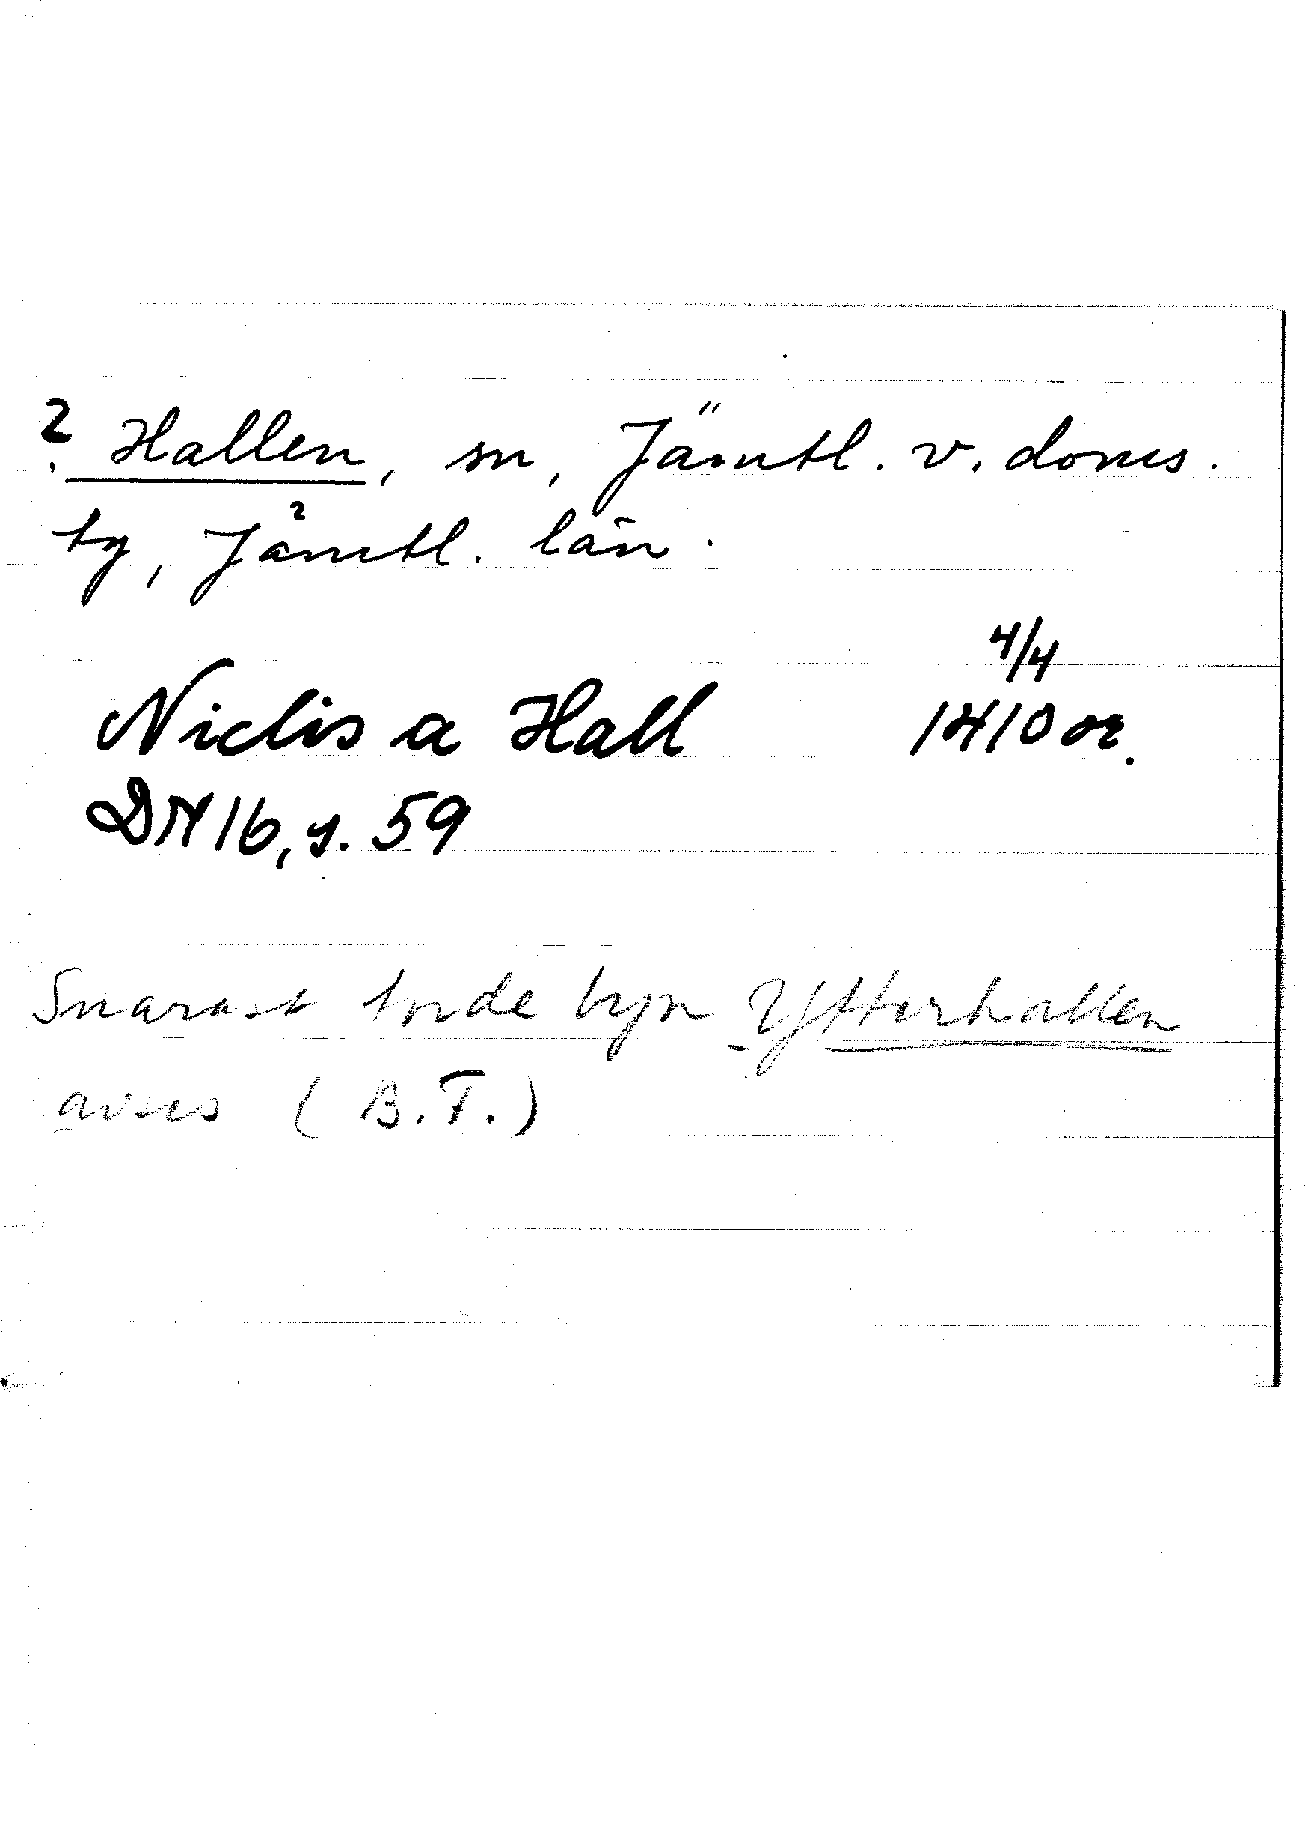 ? Hallen, sn, Jämtl. v. doms.
tg, Jämtl. län.
4/4
Niclis a Hall 1410 or.
DN 16, s. 59
Snarast torde byn Ytterhallen
avses (B.T.)